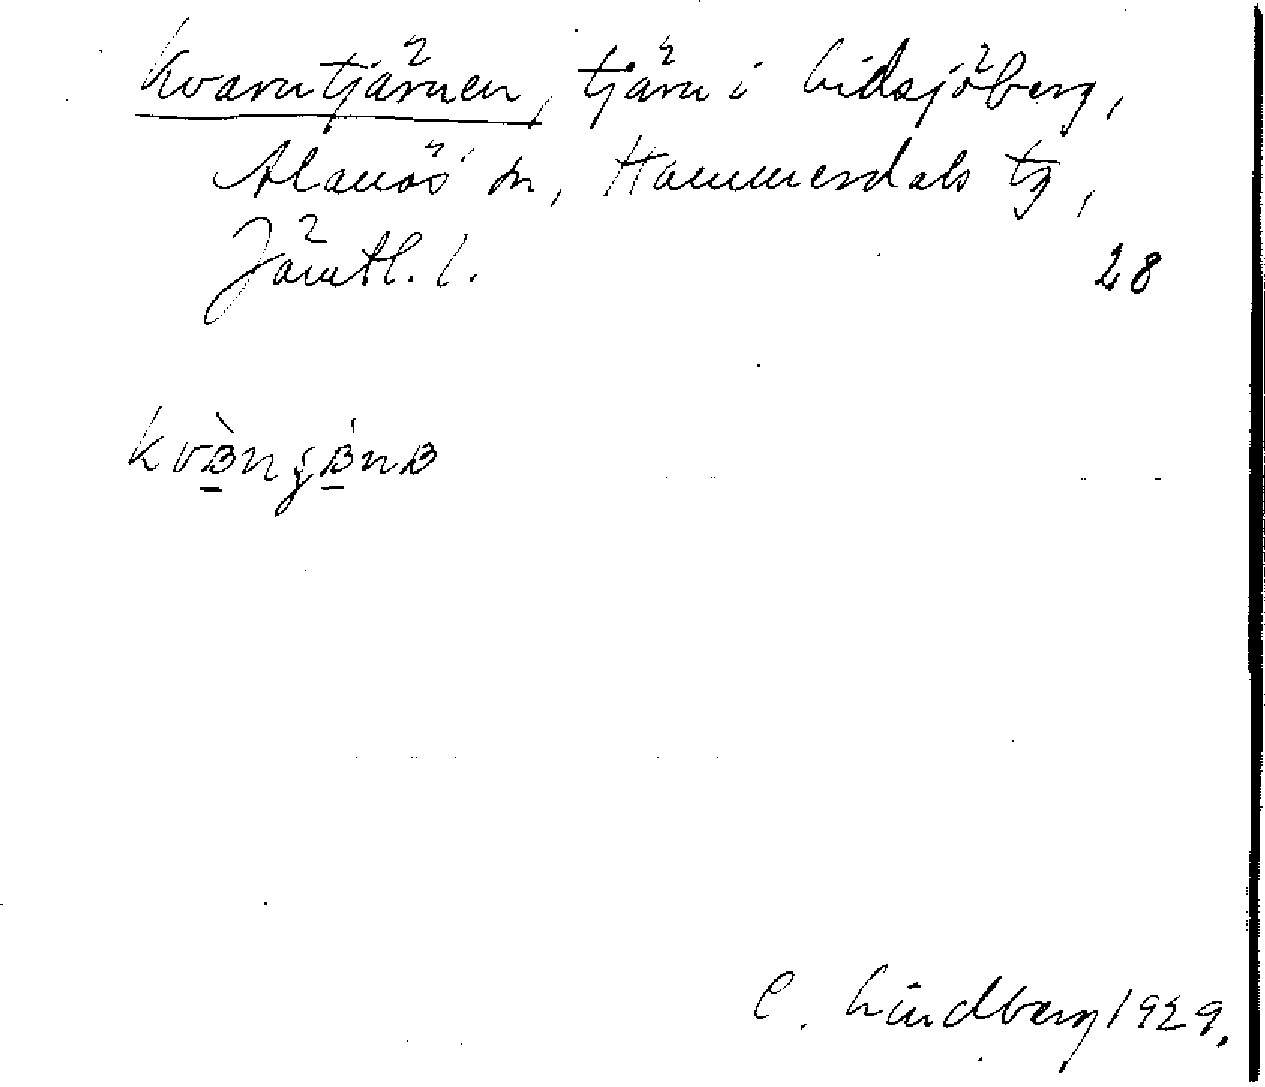 Kvarntjärnen, tjärn i Lidsjöberg,
Alanäs sn, Hammerdals tg,
Jämtl. l.
28
C. Lindberg 1929.